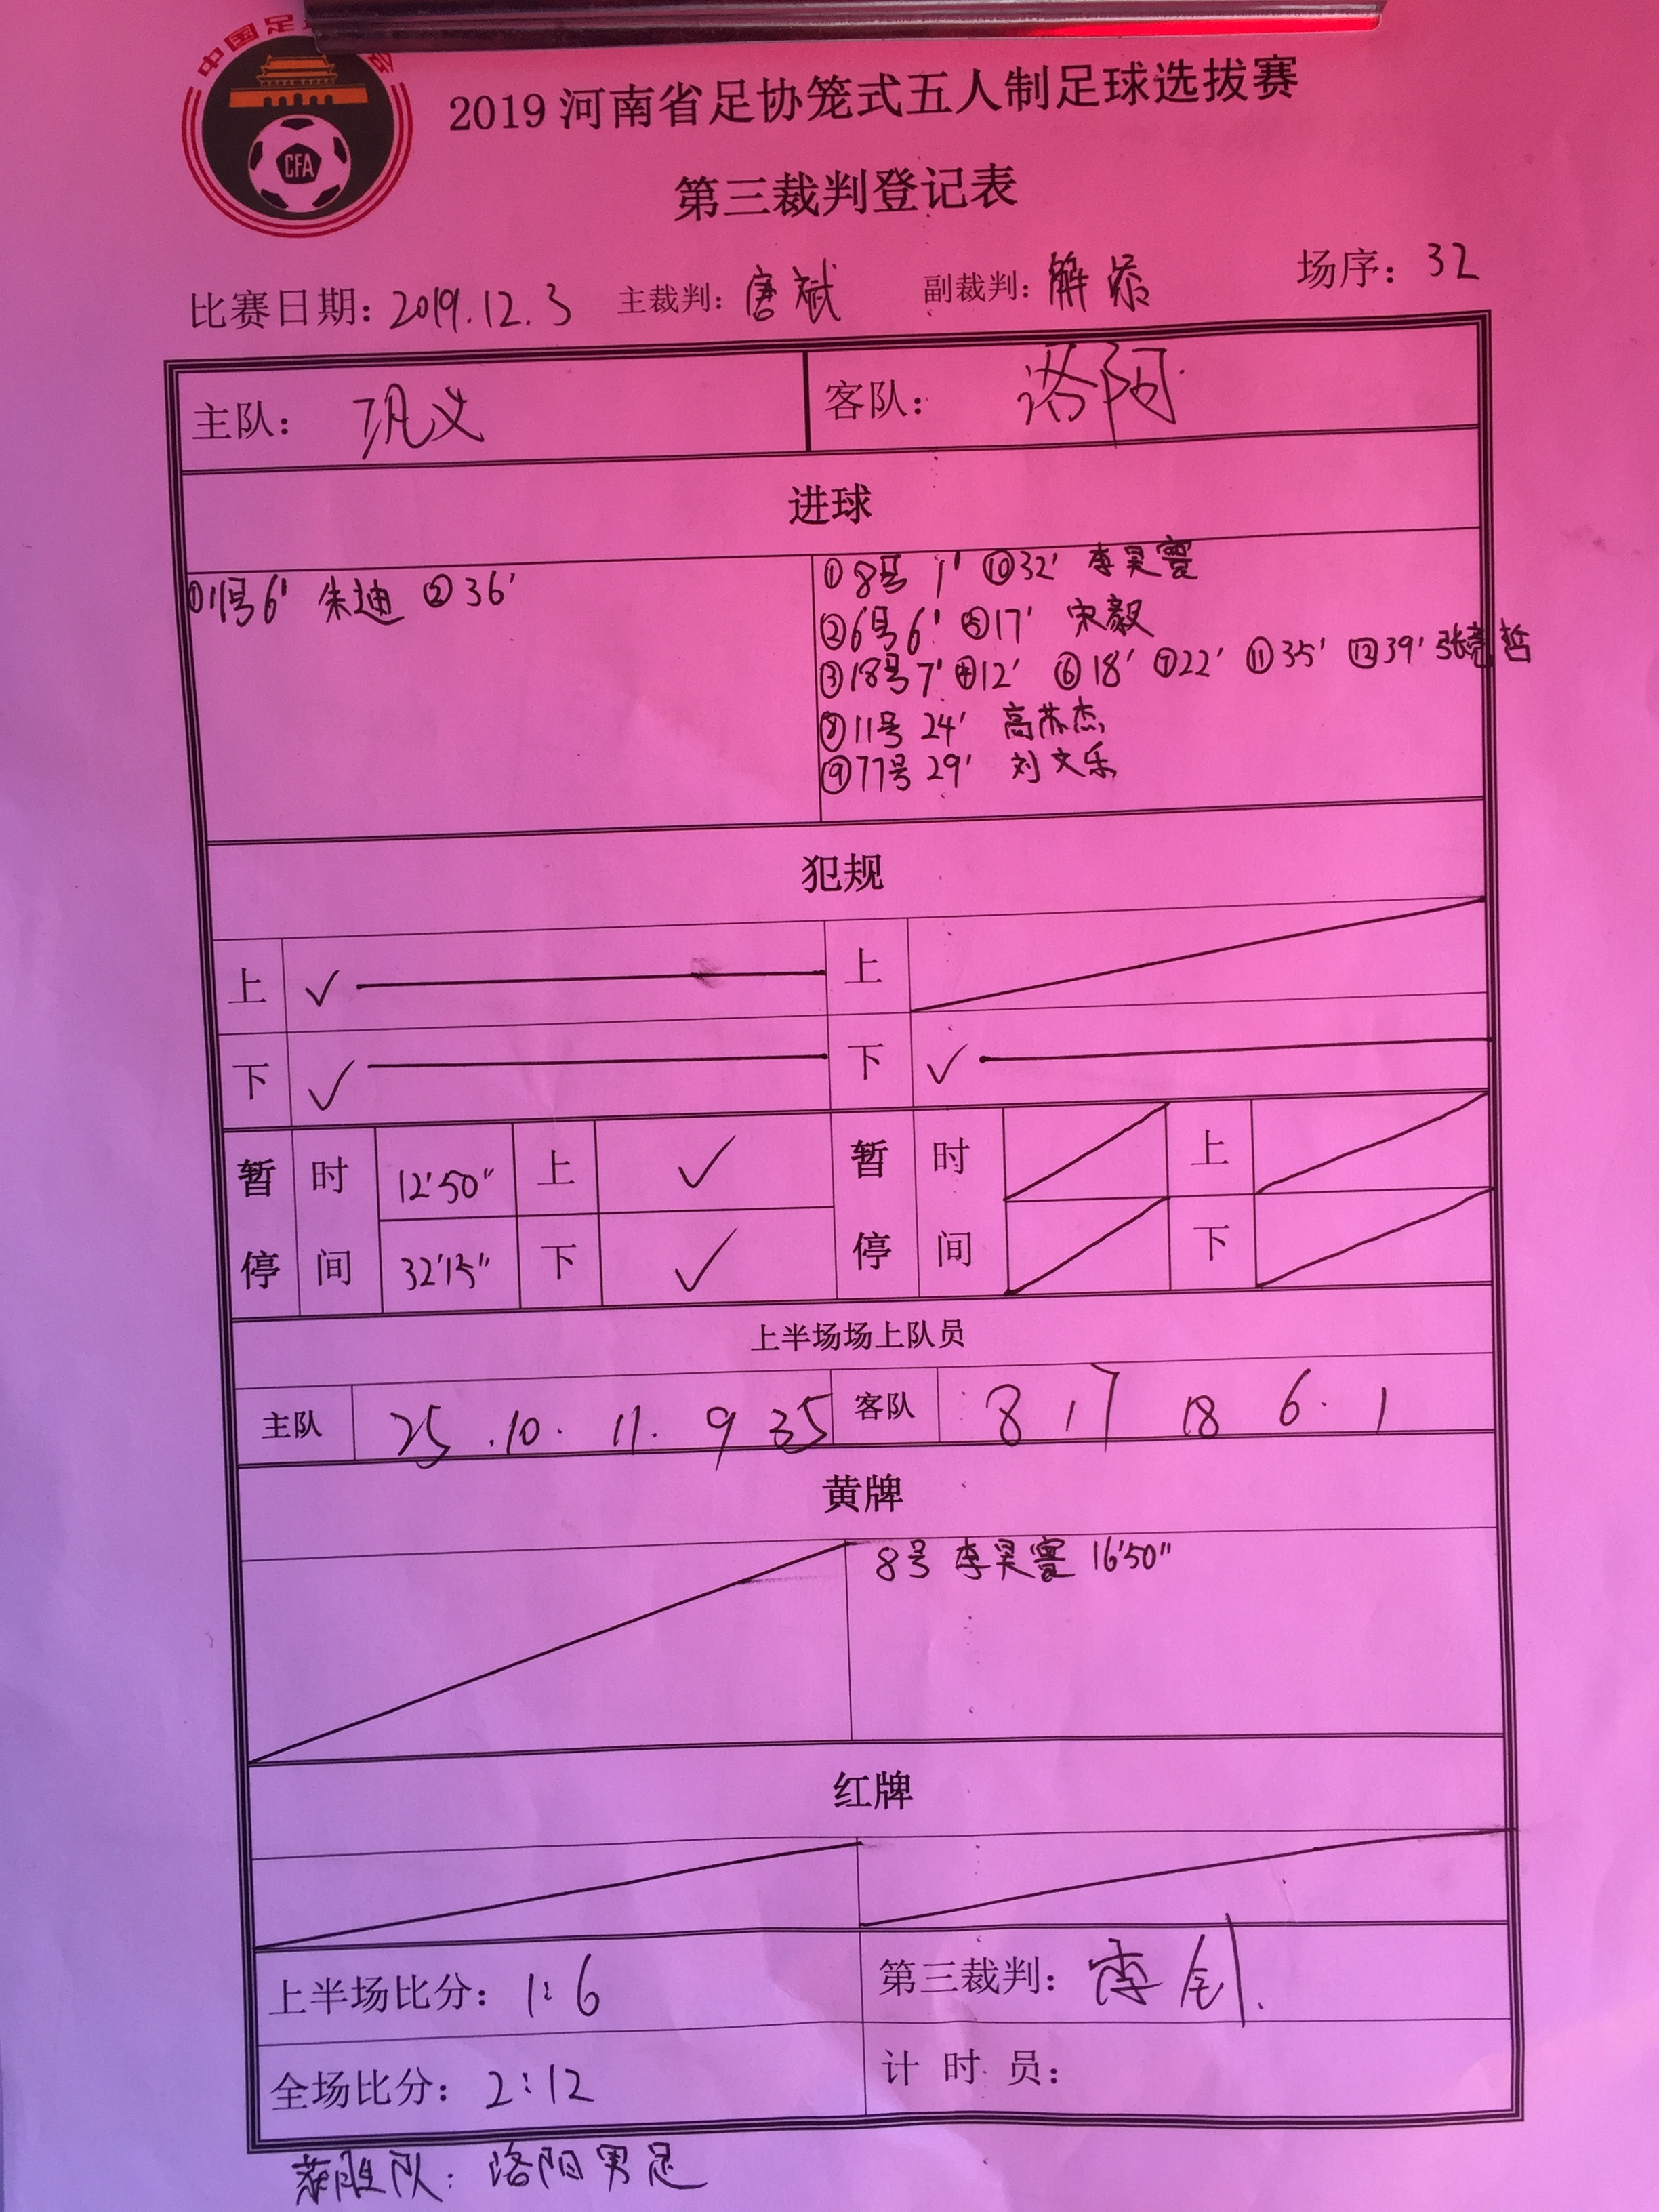 中国足
CFA
2019 河南省足协笼式五人制足球选拔赛
第三裁判登记表
比赛日期: 2019.12.3 主裁判: 唐斌 副裁判: 解 场序: 32
主队: 巩义 客队: 洛阳
进球
①11号6' 朱迪 ②36'
①8号 1' ⑩32' 李昊
②6号6' ⑤17' 宋毅
③18号7' ④12' ⑥18' ⑦22' ⑪35' ⑫39' 张亮哲
⑧11号 24' 高苏杰
⑨77号 29' 刘文乐
犯规
上 ✓ 上
下 ✓ 下 ✓
暂停 时间 12'50" 上 ✓ 暂停 时间 上
32'15" 下 ✓ 下
上半场场上队员
主队 25 . 10 . 11 . 9 35 客队 8 17 18 6 . 1
黄牌
8号 李昊 16'50"
红牌
上半场比分: 1:6 第三裁判: 李钊
全场比分: 2:12 计 时 员:
获胜队: 洛阳男足